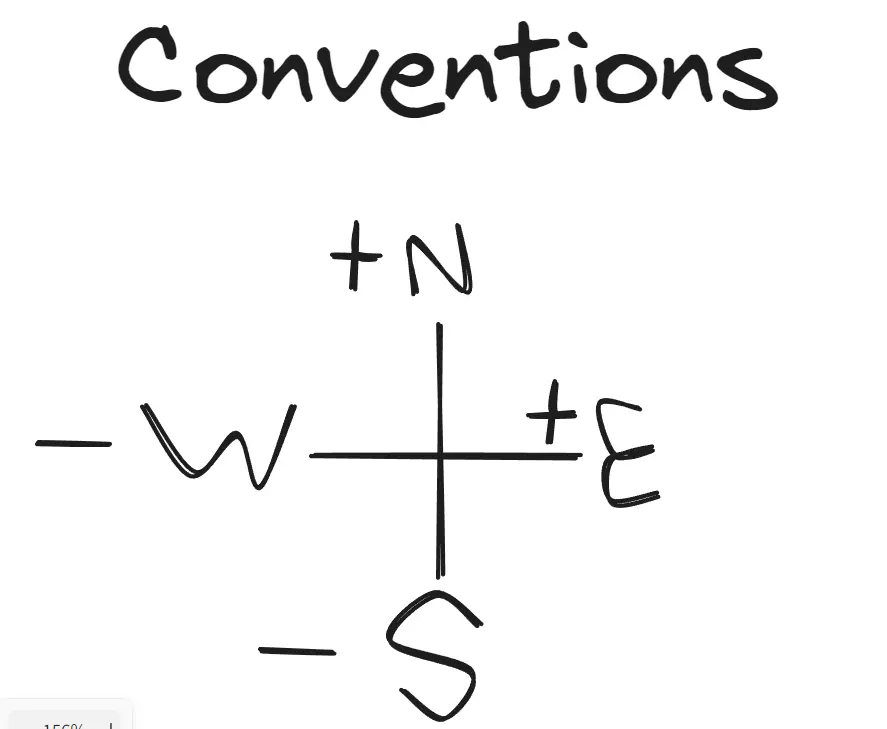 Conventions
+ N
+ E
- W
- S